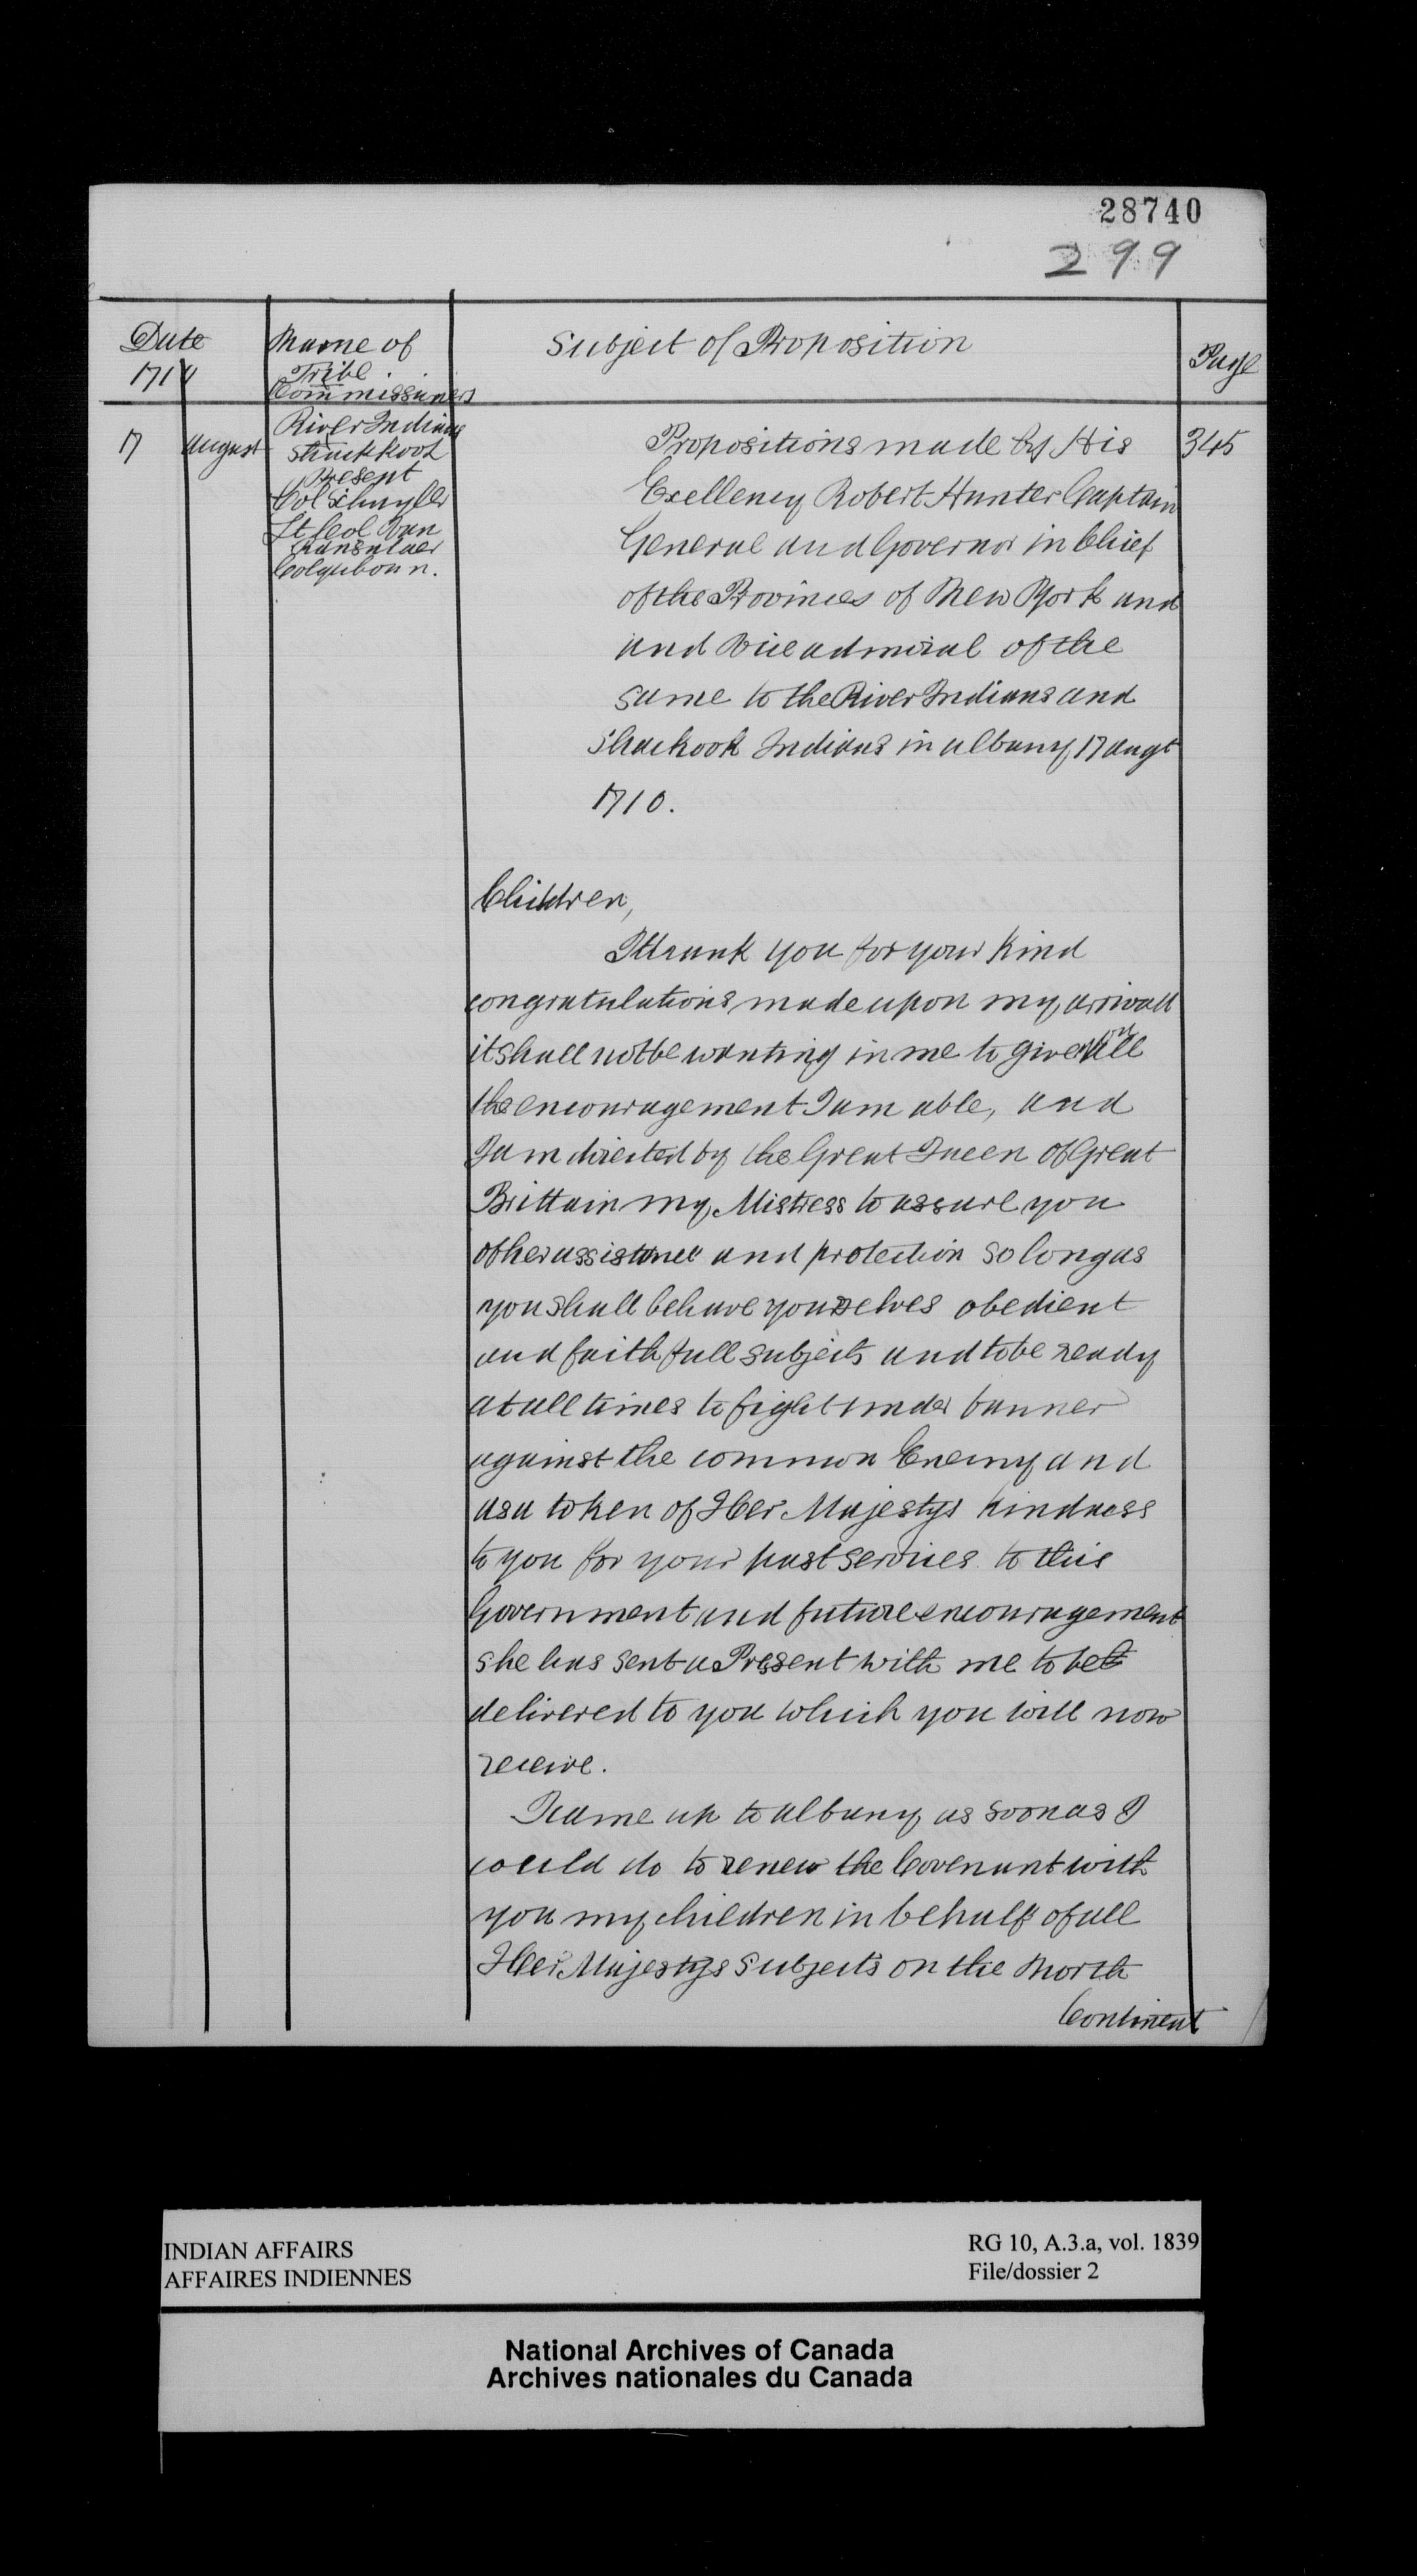 28740
299
Date
1710
Name of
Tribe
Commissioners
Subject of Proposition
Page
17 August
River Indians
Shackkook
Present
Col Schuyler
Lt Col Van
Ranslaer
Propositions made by His
345
Excellency Robert Hunter Captain
General and Governor in Chief
of the Provinces of New York and
and Vice admiral of the
same to the River Indians and
Shackook Indians in albany 17 augt
1710.
Children,
I thank you for your kind
congratulations made upon my arrivall
it shall not be wanting in me to give you all
the encouragement I am able, and
I am directed by the Great Queen of Great
Brittain my Mistress to assure you
of her assistance and protection so long as
you shall behave yourselves obedient
and faithfull subjects and to be ready
at all times to fight under banner
against the common Enemy and
as a token of Her Majestys kindness
to you for your past services to this
Government and future encouragement
she has sent a Present with me to be
delivered to you which you will now
receive.
I came up to albany as soon as I
could do to renew the Covenant with
you my children in behalf of all
Her Majestys Subjects on the North
Continent
INDIAN AFFAIRS
AFFAIRES INDIENNES
RG 10, A.3.a, vol. 1839
File/dossier 2
National Archives of Canada
Archives nationales du Canada